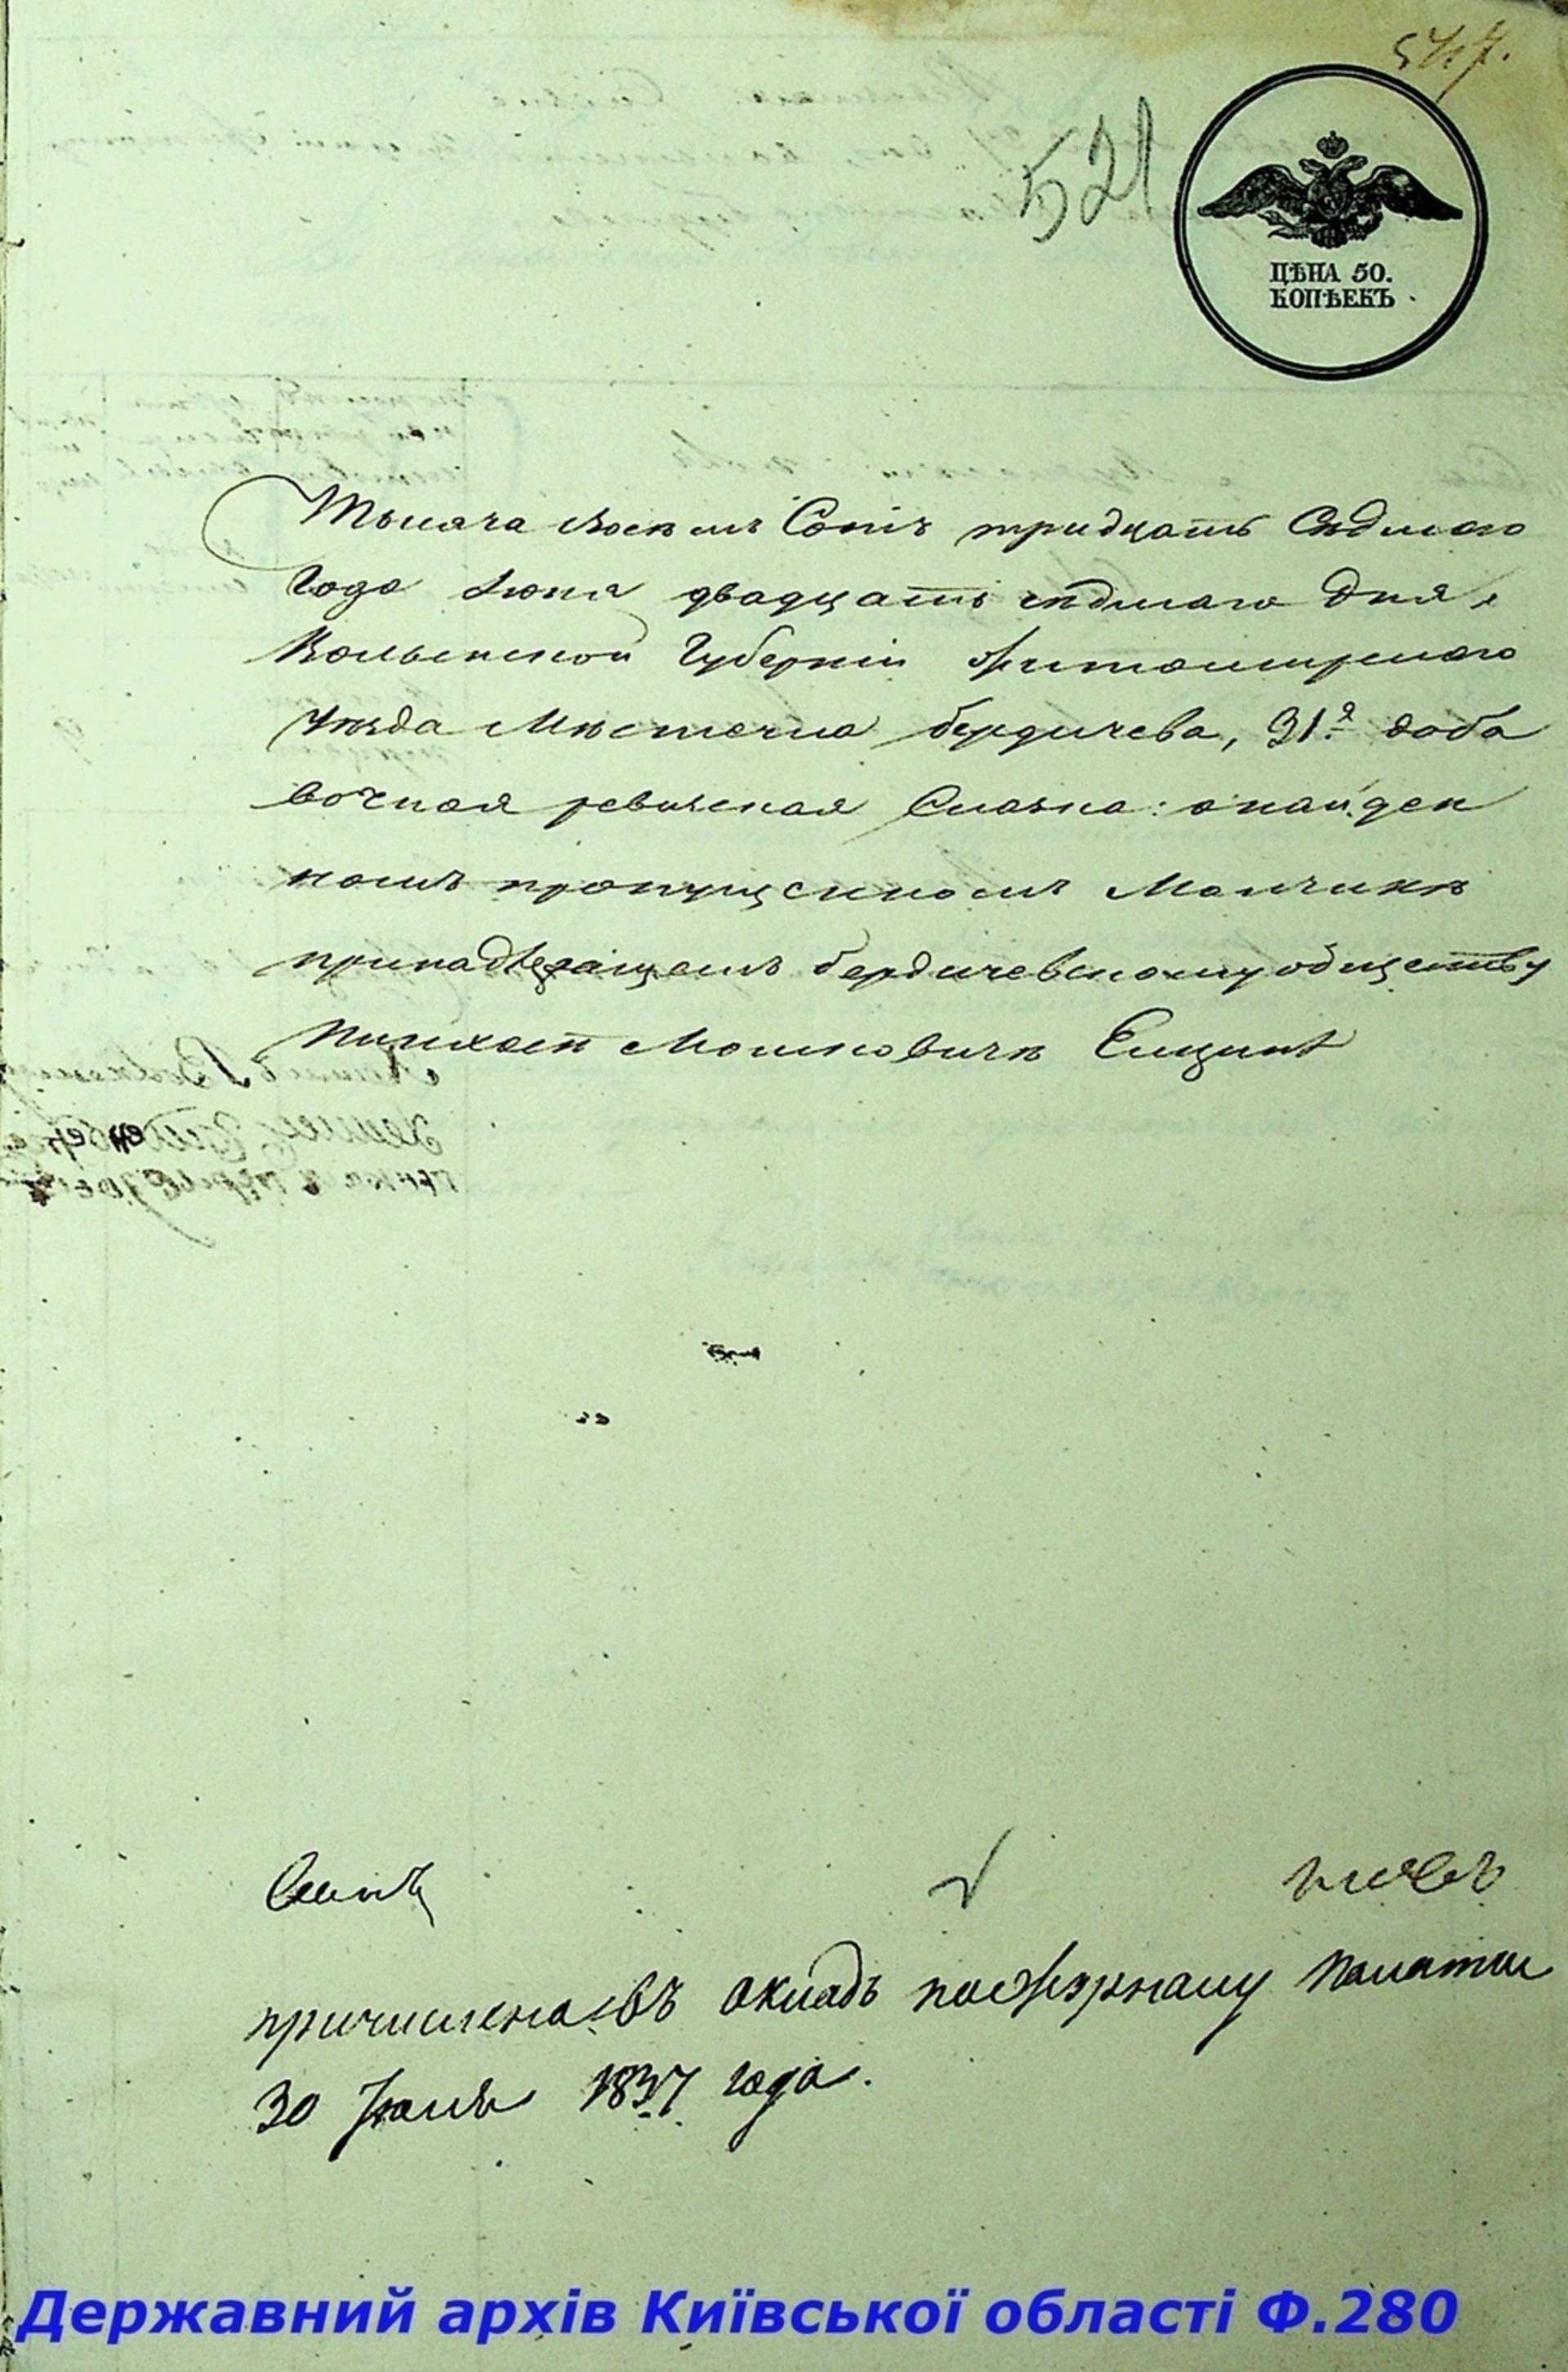 547.
521
ЦѢНА 50.
КОПѢЕКЪ.
Тысяча Восемъ Сотъ тридцать Седмаго
Года Іюня двадцать седмаго дня,
Волынской Губерніи Житомирскаго
Уѣзда Мѣстечка Бердичева, 31я доба
вочная ревизская Сказка: о найден
номъ пропущенномъ Мальчикѣ
принадлежащемъ бердичевскому обществу
Мошковичѣ
причислена въ окладъ по журналу палаты
30 1837 года.
Державний архів Київської області Ф.280